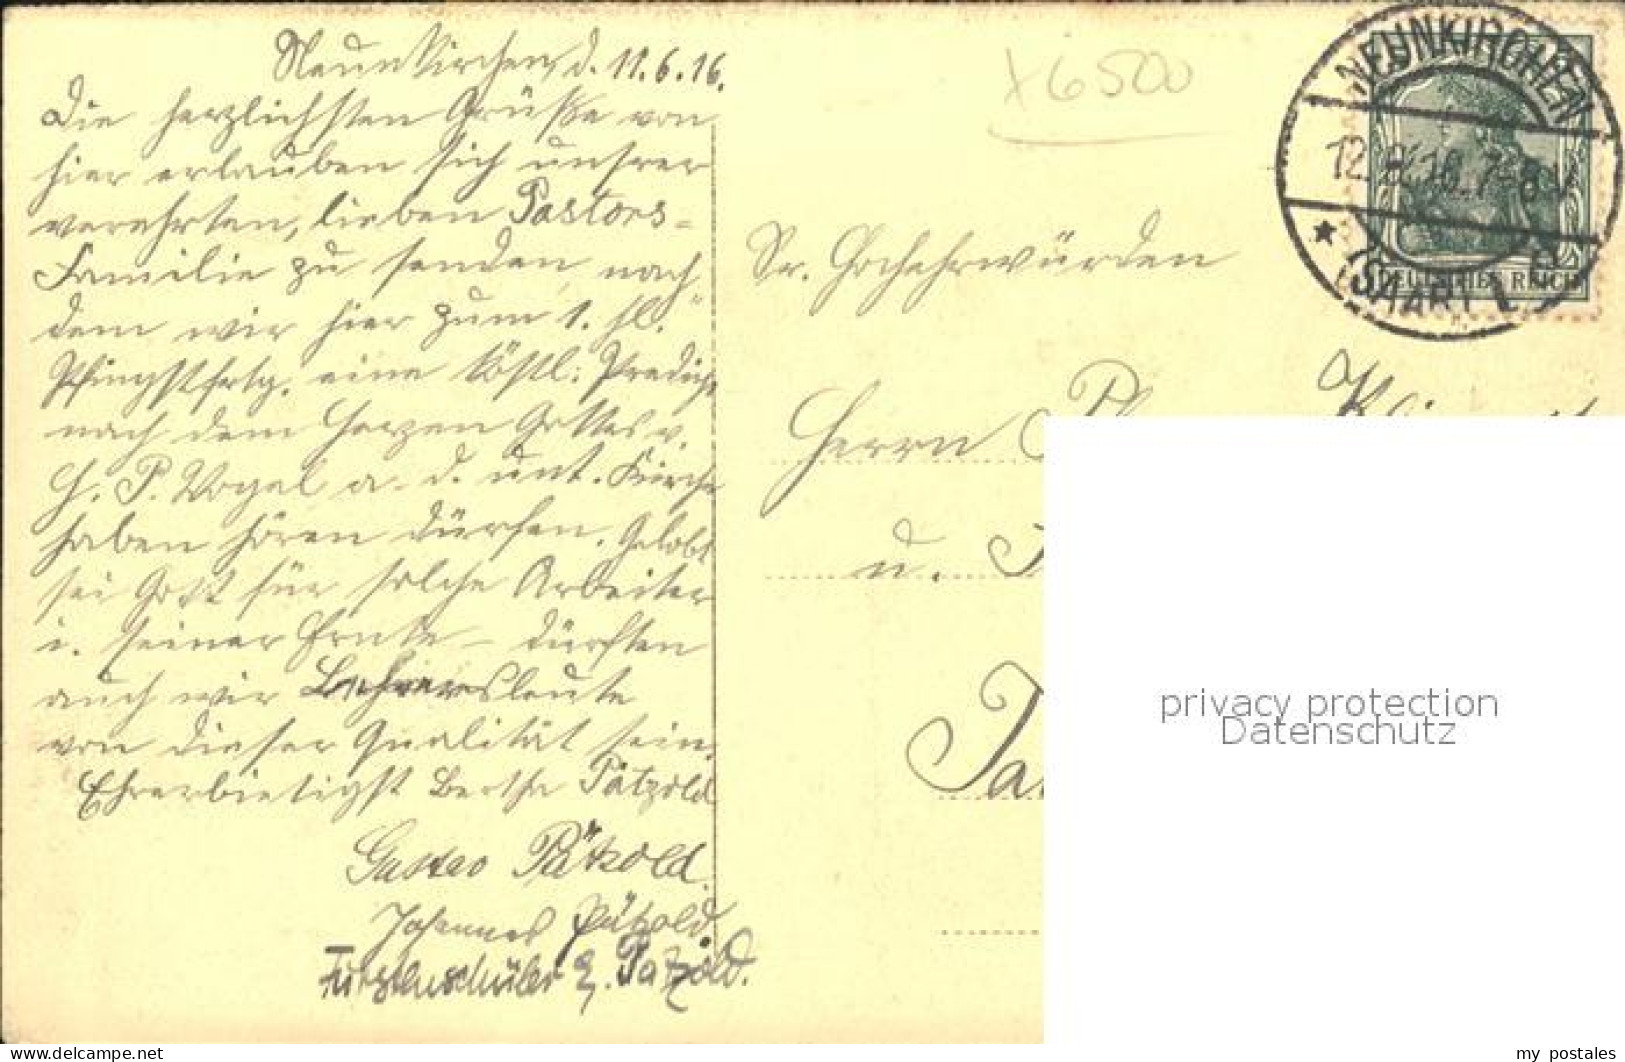 Neunkirchen, d. 11.6.16.
Die herzlichsten Grüße von
hier erlauben sich unsrer
verehrten, lieben Pastors=
Familie zu senden, nach
dem wir hier zum 1. hl.
Pfingstfstg. eine köstl: Predigt
nach dem Herzen Gottes v.
H. P. Vogel a. d. unt. Kirche
haben hören dürfen. Gelobt
sei Gott für solche Arbeiter
i. seiner Ernte – dürften
auch wir Lehrersleute
von dieser Qualität sein.
Ehrerbietigst Bertha Pätzold
Gustav Pätzold.
Johannes Pätzold
Fürstenschüler E. Pätzold.
x6500
NEUNKIRCHEN
12.6.16.7-8V
★ (SAAR)
DEUTSCHES REICH
Sr. Hochehrwürden
Herrn
u.
privacy protection
Datenschutz
my postales
www.delcampe.net